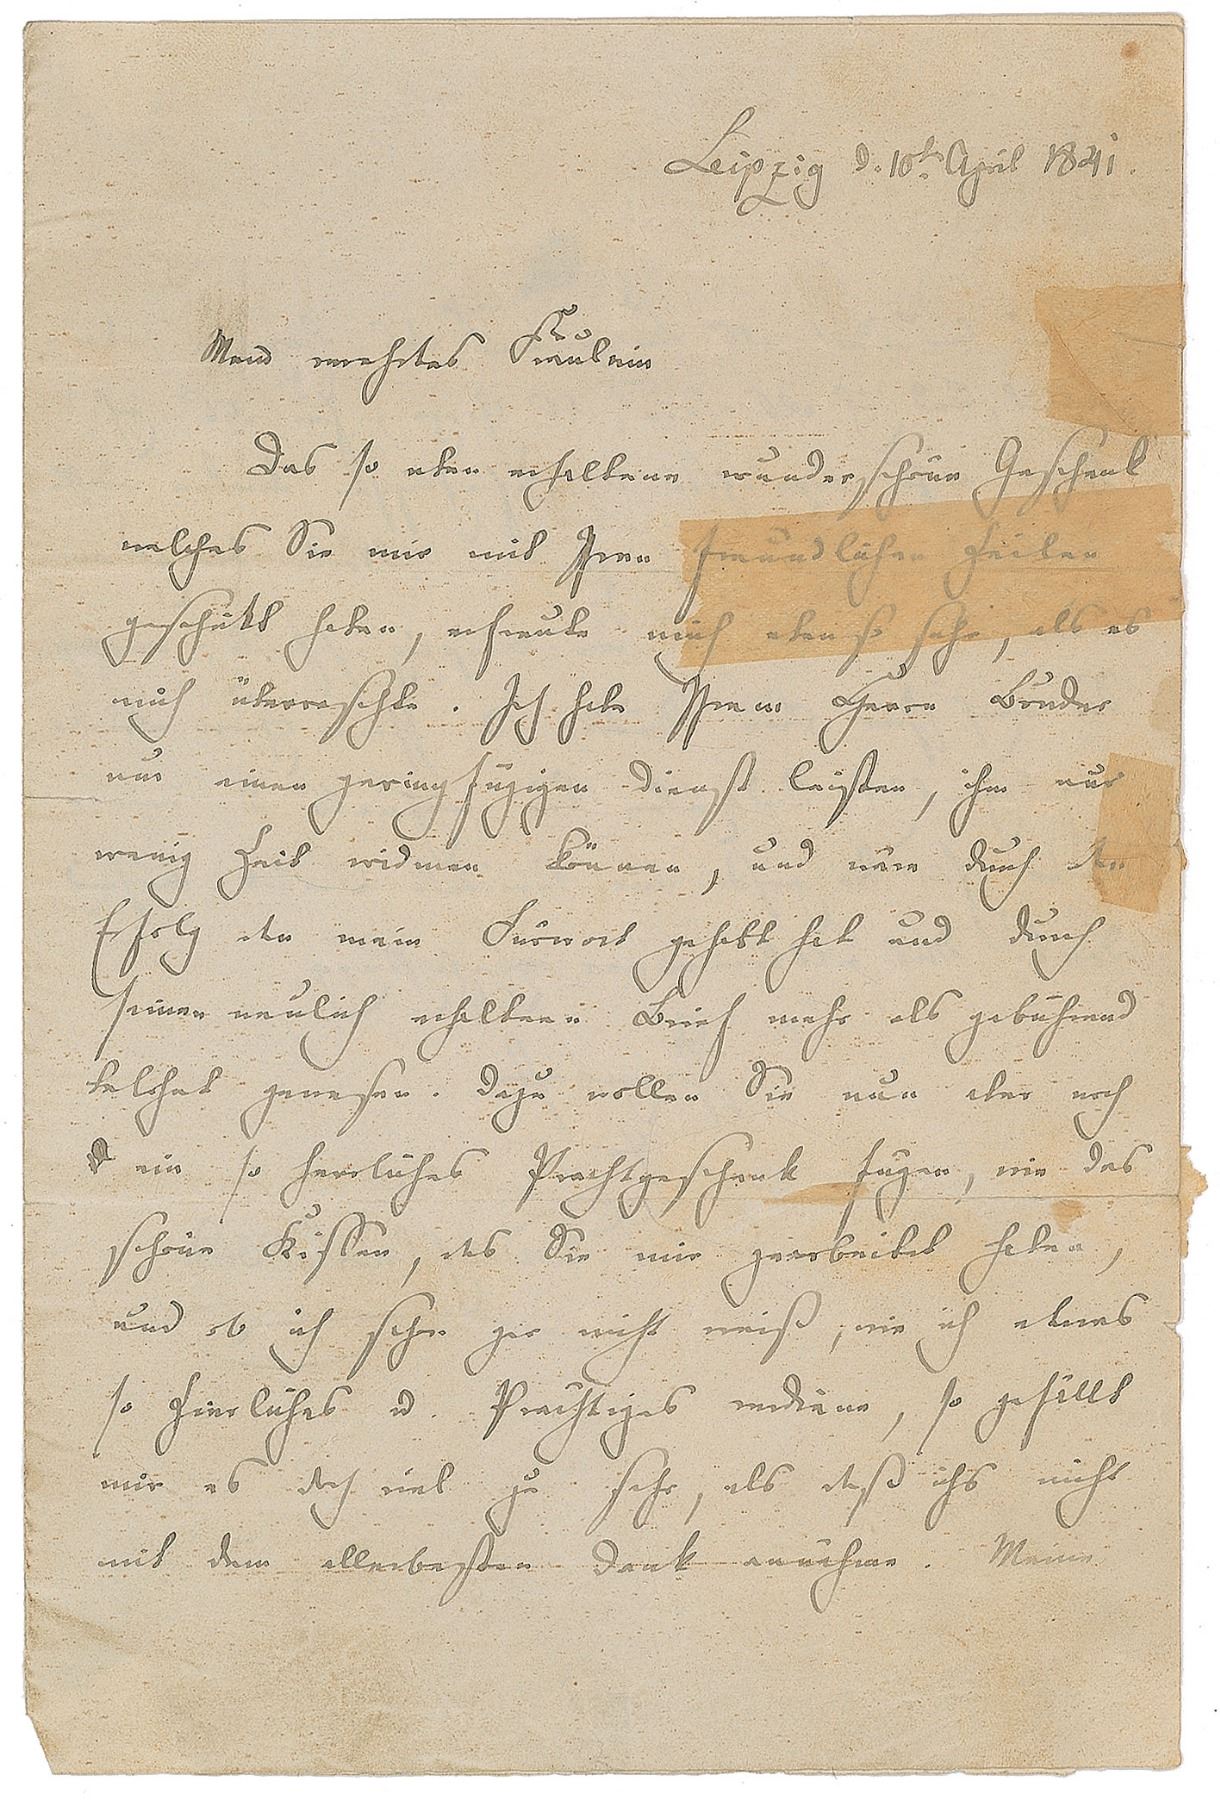 Leipzig d. 10t. April 1841.
Mein verehrtes Fräulein
Das so eben erhaltene wunderschöne Geschenk
welches Sie mir mit Ihren freundlichen Zeilen
geschickt haben, erfreute mich eben so sehr, als es
mich überraschte. Ich habe Ihrem Herrn Bruder
nur einen geringfügigen Dienst leisten, ihm nur
wenig Zeit widmen können, und wäre durch den
Erfolg den mein Fürwort gehabt hat und durch
seinen neulich erhaltenen Brief mehr als gebührend
belohnt gewesen. Dazu wollen Sie nun aber noch
ein so herrliches Prachtgeschenk fügen, wie das
schöne Kissen, das Sie mir gearbeitet haben,
und ob ich schon gar nicht weiß, wie ich etwas
so Zierliches u. Prächtiges verdiene, so gefällt
mir es doch viel zu sehr, als daß ichs nicht
mit dem allerbesten Dank annähme. Meine